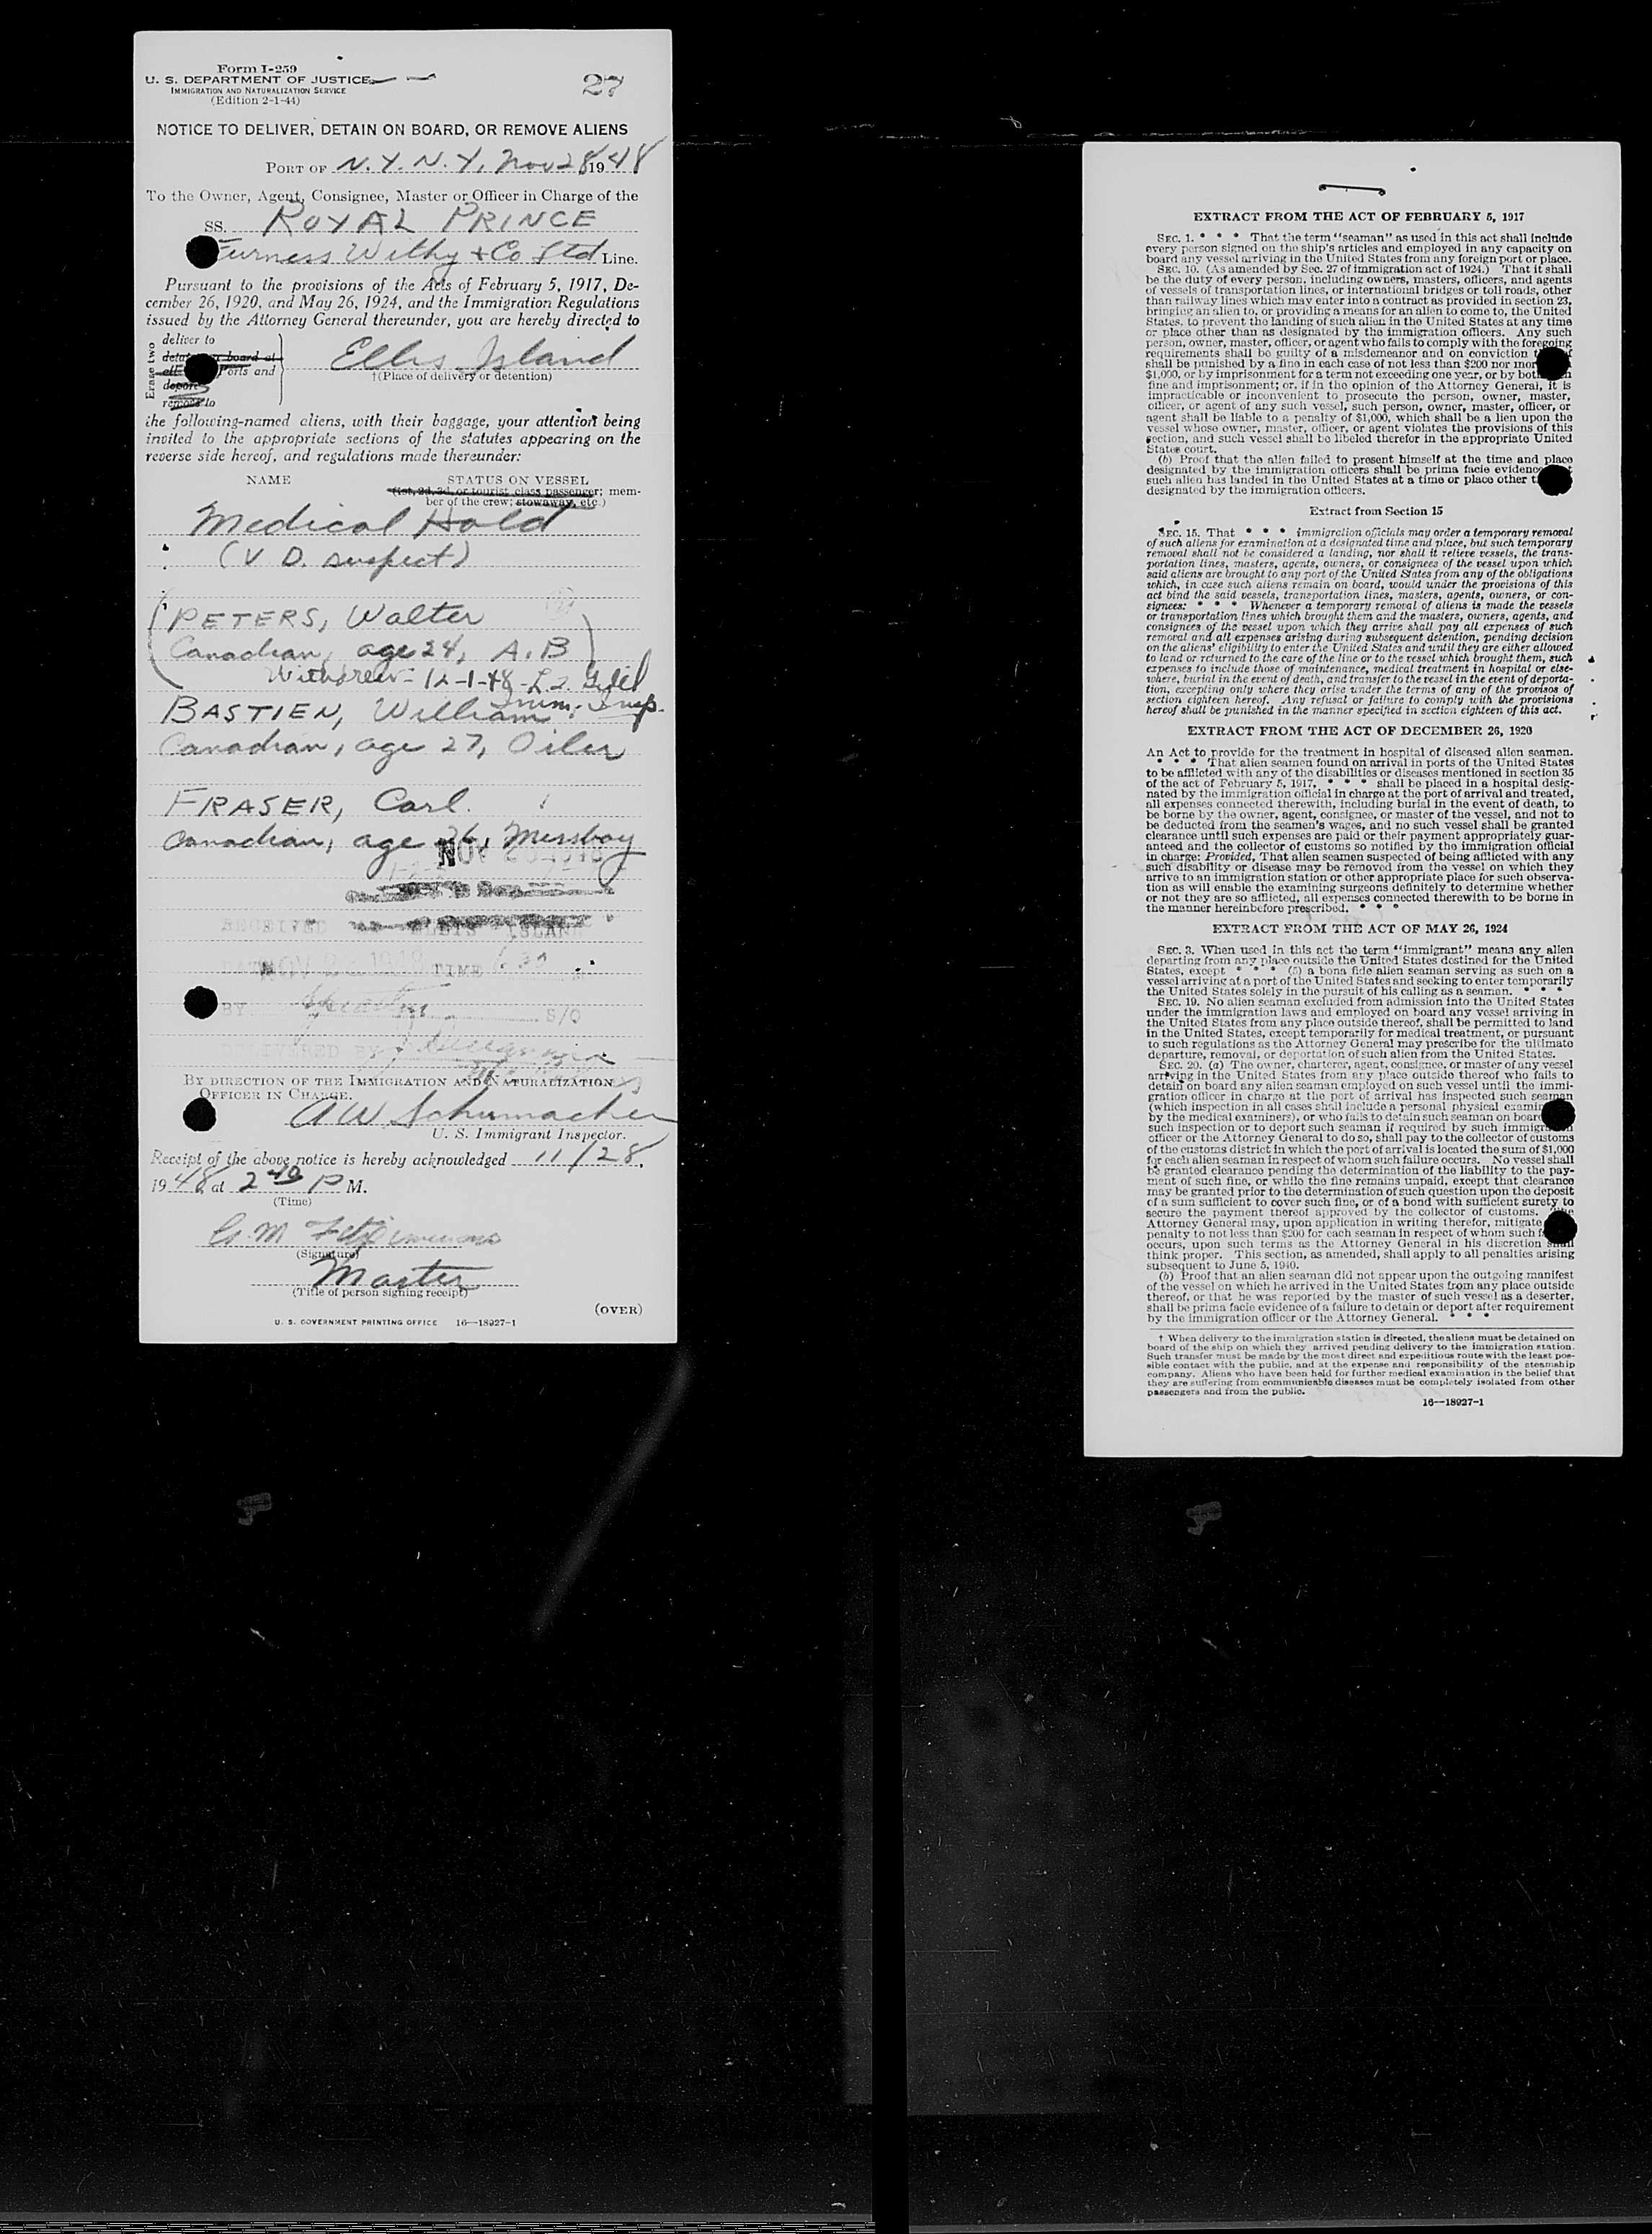 Form I-259
U. S. DEPARTMENT OF JUSTICE
IMMIGRATION AND NATURALIZATION SERVICE
(Edition 2-1-44)
27
NOTICE TO DELIVER, DETAIN ON BOARD, OR REMOVE ALIENS
PORT OF N.Y. N.Y, Nov 28 1948
To the Owner, Agent, Consignee, Master or Officer in Charge of the
SS. ROYAL PRINCE
Furness Withy + Co Ltd Line.
Pursuant to the provisions of the Acts of February 5, 1917, De-
cember 26, 1920, and May 26, 1924, and the Immigration Regulations
issued by the Attorney General thereunder, you are hereby directed to
Erase two
deliver to
board at
Ports and
remove to
Ellis Island
†(Place of delivery or detention)
the following-named aliens, with their baggage, your attention being
invited to the appropriate sections of the statutes appearing on the
reverse side hereof, and regulations made thereunder:
NAME STATUS ON VESSEL
(1st, 2d, 3d, or tourist class passenger; mem-
ber of the crew; stowaway, etc.)
Medical Hold
(V D. suspect)
(PETERS, Walter
Canadian, age 24, A.B)
Withdrew- 12-1-48
BASTIEN, William
Canadian, age 27, Oiler
FRASER, Carl.
Canadian, age 26, Messboy
RECEIVED ELLIS ISLAND
DATE NOV 28 1948 TIME 6 30
BY S/O
DELIVERED BY
BY DIRECTION OF THE IMMIGRATION AND NATURALIZATION
OFFICER IN CHARGE.
A W Schumacher
U. S. Immigrant Inspector.
Receipt of the above notice is hereby acknowledged 11/28,
1948 at 2 40 P M.
(Time)
G. M Fitzsimmons
(Signature)
Master
(Title of person signing receipt)
(OVER)
U. S. GOVERNMENT PRINTING OFFICE 16—18927-1
EXTRACT FROM THE ACT OF FEBRUARY 5, 1917
SEC. 1. * * * That the term "seaman" as used in this act shall include
every person signed on the ship's articles and employed in any capacity on
board any vessel arriving in the United States from any foreign port or place.
SEC. 10. (As amended by Sec. 27 of immigration act of 1924.) That it shall
be the duty of every person, including owners, masters, officers, and agents
of vessels of transportation lines, or international bridges or toll roads, other
than railway lines which may enter into a contract as provided in section 23,
bringing an alien to, or providing a means for an alien to come to, the United
States, to prevent the landing of such alien in the United States at any time
or place other than as designated by the immigration officers. Any such
person, owner, master, officer, or agent who fails to comply with the foregoing
requirements shall be guilty of a misdemeanor and on conviction
shall be punished by a fine in each case of not less than $200 nor more
$1,000, or by imprisonment for a term not exceeding one year, or by both
fine and imprisonment; or, if in the opinion of the Attorney General, it is
impracticable or inconvenient to prosecute the person, owner, master,
officer, or agent of any such vessel, such person, owner, master, officer, or
agent shall be liable to a penalty of $1,000, which shall be a lien upon the
vessel whose owner, master, officer, or agent violates the provisions of this
section, and such vessel shall be libeled therefor in the appropriate United
States court.
(b) Proof that the alien failed to present himself at the time and place
designated by the immigration officers shall be prima facie evidence
such alien has landed in the United States at a time or place other
designated by the immigration officers.
Extract from Section 15
SEC. 15. That * * * immigration officials may order a temporary removal
of such aliens for examination at a designated time and place, but such temporary
removal shall not be considered a landing, nor shall it relieve vessels, the trans-
portation lines, masters, agents, owners, or consignees of the vessel upon which
said aliens are brought to any port of the United States from any of the obligations
which, in case such aliens remain on board, would under the provisions of this
act bind the said vessels, transportation lines, masters, agents, owners, or con-
signees: * * * Whenever a temporary removal of aliens is made the vessels
or transportation lines which brought them and the masters, owners, agents, and
consignees of the vessel upon which they arrive shall pay all expenses of such
removal and all expenses arising during subsequent detention, pending decision
on the aliens' eligibility to enter the United States and until they are either allowed
to land or returned to the care of the line or to the vessel which brought them, such
expenses to include those of maintenance, medical treatment in hospital or else-
where, burial in the event of death, and transfer to the vessel in the event of deporta-
tion, excepting only where they arise under the terms of any of the provisos of
section eighteen hereof. Any refusal or failure to comply with the provisions
hereof shall be punished in the manner specified in section eighteen of this act.
EXTRACT FROM THE ACT OF DECEMBER 26, 1920
An Act to provide for the treatment in hospital of diseased alien seamen.
* * * That alien seamen found on arrival in ports of the United States
to be afflicted with any of the disabilities or diseases mentioned in section 35
of the act of February 5, 1917, * * * shall be placed in a hospital desig-
nated by the immigration official in charge at the port of arrival and treated,
all expenses connected therewith, including burial in the event of death, to
be borne by the owner, agent, consignee, or master of the vessel, and not to
be deducted from the seamen's wages, and no such vessel shall be granted
clearance until such expenses are paid or their payment appropriately guar-
anteed and the collector of customs so notified by the immigration official
in charge: Provided, That alien seamen suspected of being afflicted with any
such disability or disease may be removed from the vessel on which they
arrive to an immigration station or other appropriate place for such observa-
tion as will enable the examining surgeons definitely to determine whether
or not they are so afflicted, all expenses connected therewith to be borne in
the manner hereinbefore prescribed. * * *
EXTRACT FROM THE ACT OF MAY 26, 1924
SEC. 3. When used in this act the term "immigrant" means any alien
departing from any place outside the United States destined for the United
States, except * * * (5) a bona fide alien seaman serving as such on a
vessel arriving at a port of the United States and seeking to enter temporarily
the United States solely in the pursuit of his calling as a seaman. * * *
SEC. 19. No alien seaman excluded from admission into the United States
under the immigration laws and employed on board any vessel arriving in
the United States from any place outside thereof, shall be permitted to land
in the United States, except temporarily for medical treatment, or pursuant
to such regulations as the Attorney General may prescribe for the ultimate
departure, removal, or deportation of such alien from the United States.
SEC. 20. (a) The owner, charterer, agent, consignee, or master of any vessel
arriving in the United States from any place outside thereof who fails to
detain on board any alien seaman employed on such vessel until the immi-
gration officer in charge at the port of arrival has inspected such seaman
(which inspection in all cases shall include a personal physical
by the medical examiners), or who fails to detain such seaman on board
such inspection or to deport such seaman if required by such
officer or the Attorney General to do so, shall pay to the collector of customs
of the customs district in which the port of arrival is located the sum of $1,000
for each alien seaman in respect of whom such failure occurs. No vessel shall
be granted clearance pending the determination of the liability to the pay-
ment of such fine, or while the fine remains unpaid, except that clearance
may be granted prior to the determination of such question upon the deposit
of a sum sufficient to cover such fine, or of a bond with sufficient surety to
secure the payment thereof approved by the collector of customs. The
Attorney General may, upon application in writing therefor, mitigate
penalty to not less than $200 for each seaman in respect of whom such
occurs, upon such terms as the Attorney General in his discretion shall
think proper. This section, as amended, shall apply to all penalties arising
subsequent to June 5, 1940.
(b) Proof that an alien seaman did not appear upon the outgoing manifest
of the vessel on which he arrived in the United States from any place outside
thereof, or that he was reported by the master of such vessel as a deserter,
shall be prima facie evidence of a failure to detain or deport after requirement
by the immigration officer or the Attorney General. * * *
† When delivery to the immigration station is directed, the aliens must be detained on
board of the ship on which they arrived pending delivery to the immigration station.
Such transfer must be made by the most direct and expeditious route with the least pos-
sible contact with the public, and at the expense and responsibility of the steamship
company. Aliens who have been held for further medical examination in the belief that
they are suffering from communicable diseases must be completely isolated from other
passengers and from the public.
16—18927-1